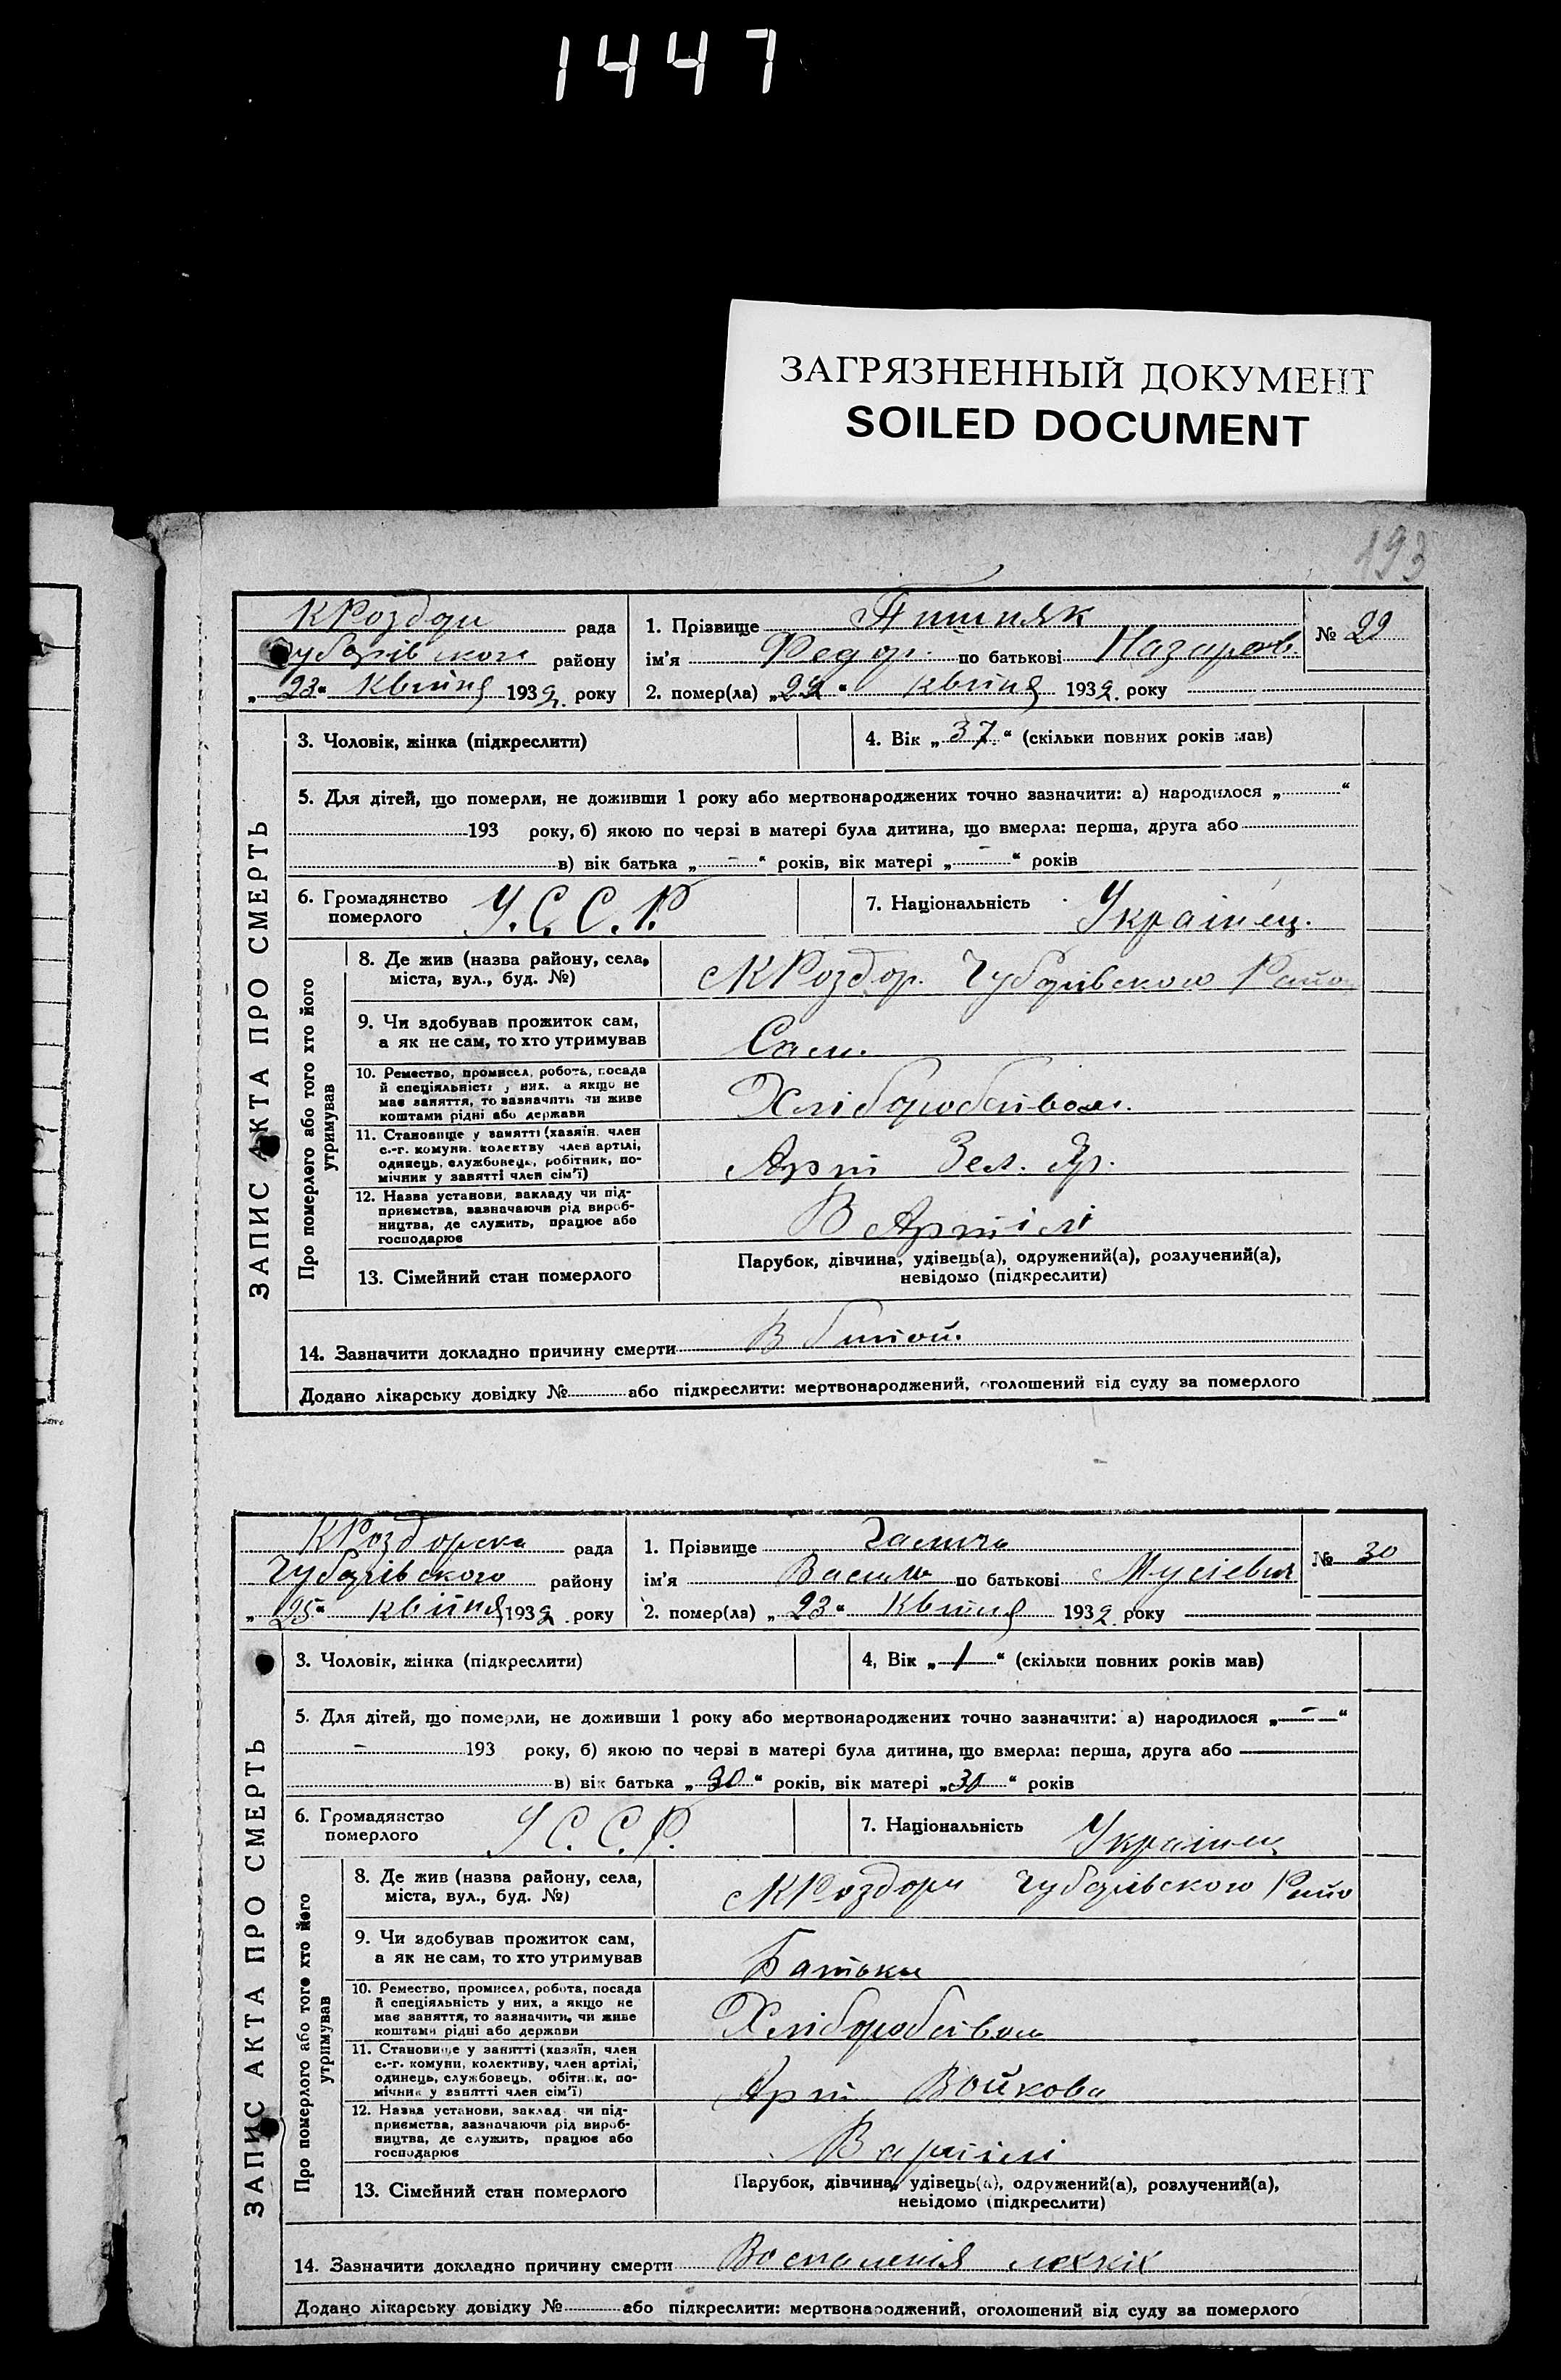 1447
ЗАГРЯЗНЕННЫЙ ДОКУМЕНТ
SOILED DOCUMENT
193
КРоздори рада
Чубарівського району
„23“ Квітня 1932 року
1. Прізвище
ім'я Федор по батькові Назаров.
2. помер(ла) „22“ квітня 1932 року
№ 29
ЗАПИС АКТА ПРО СМЕРТЬ
3. Чоловік, жінка (підкреслити)
4. Вік „37“ (скільки повних років мав)
5. Для дітей, що померли, не доживши 1 року або мертвонароджених точно зазначити: а) народилося „ “
193 року, б) якою по черзі в матері була дитина, що вмерла: перша, друга або
в) вік батька „ – “ років, вік матері „ – “ років
6. Громадянство
померлого
У.С.С.Р.
7. Національність Украінец.
Про померлого або того хто його
утримував
8. Де жив (назва району, села,
міста, вул., буд. №)
КРоздор. Чубарівского Райо
9. Чи здобував прожиток сам,
а як не сам, то хто утримував
Сам.
10. Ремество, промисел, робота, посада
й спеціяльність у них, а якщо не
має заняття, то зазначить чи живе
коштами рідні або держави
Хліборобством.
11. Становище у занятті (хазяїн, член
с.-г. комуни, колективу, член артілі,
одинець, службовець, робітник, по-
мічник у занятті член сім'ї)
Арт Зел. Яр.
12. Назва установи, закладу чи під-
приємства, зазначаючи рід вироб-
ництва, де служить, працює або
господарює
В Артілі
13. Сімейний стан померлого
Парубок, дівчина, удівець(а), одружений(а), розлучений(а),
невідомо (підкреслити)
14. Зазначити докладно причину смерти
Додано лікарську довідку № або підкреслити: мертвонароджений, оголошений від суду за померлого
КРоздорска рада
Чубарівского району
„25“ квітня 1932 року
1. Прізвище
ім'я Василь по батькові Мусіевич
2. помер(ла) „23“ Квітня 1932 року
№ 30
ЗАПИС АКТА ПРО СМЕРТЬ
3. Чоловік, жінка (підкреслити)
4, Вік „1“ (скільки повних років мав)
5. Для дітей, що померли, не доживши 1 року або мертвонароджених точно зазначити: а) народилося „ – “
– 193 року, б) якою по черзі в матері була дитина, що вмерла: перша, друга або
в) вік батька „30“ років, вік матері „30“ років
6. Громадянство
померлого
У С. С. Р.
7. Національність Украінец
Про померлого або того хто його
утримував
8. Де жив (назва району, села,
міста, вул., буд. №)
КРоздори Чубарівского Райо
9. Чи здобував прожиток сам,
а як не сам, то хто утримував
Батьки
10. Ремество, промисел, робота, посада
й спеціяльність у них, а якщо не
має заняття, то зазначити, чи живе
коштами рідні або держави
Хліборобством
11. Становище у занятті (хазяїн, член
с.-г. комуни, колективу, член артілі,
одинець, службовець, обітник, по-
мічник у занятті член сім'ї)
Арт Войкова
12. Назва установи, заклад чи під-
приємства, зазначаючи рід вироб-
ництва, де служить, працює або
господарює
В артілі
13. Сімейний стан померлого
Парубок, дівчина, удівець(а), одружений(а), розлучений(а),
невідомо (підкреслити)
14. Зазначити докладно причину смерти Воспаленія лехких
Додано лікарську довідку № або підкреслити: мертвонароджений, оголошений від суду за померлого